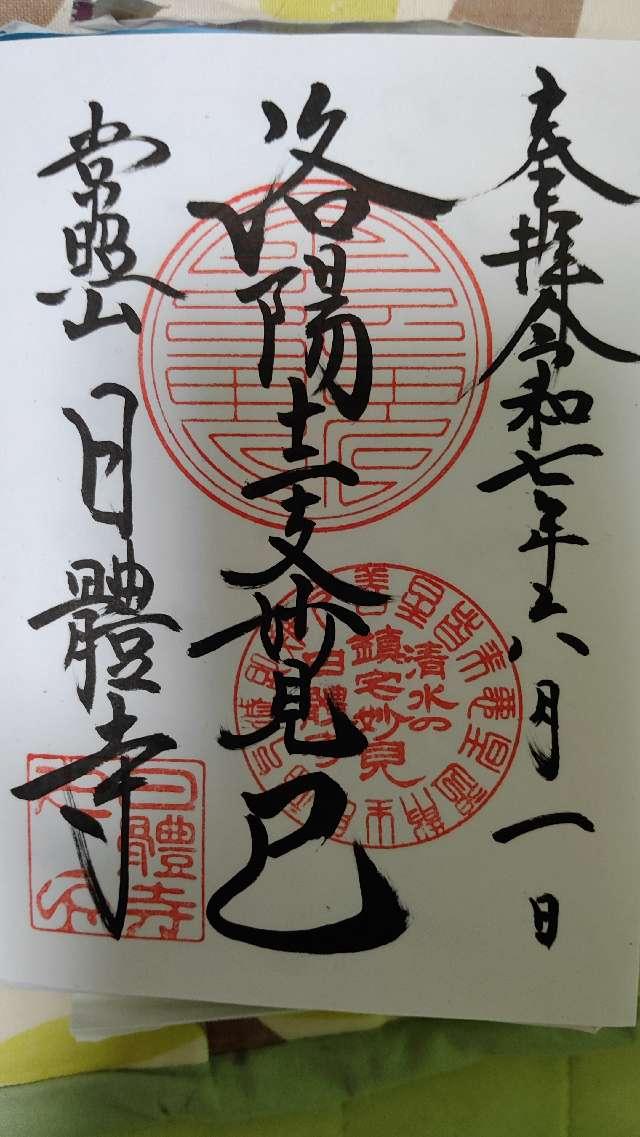 奉拝 令和七年六月一日
洛陽十二支妙見 巳
清水の
鎮宅妙見
日體寺
常照山 日體寺
日體寺